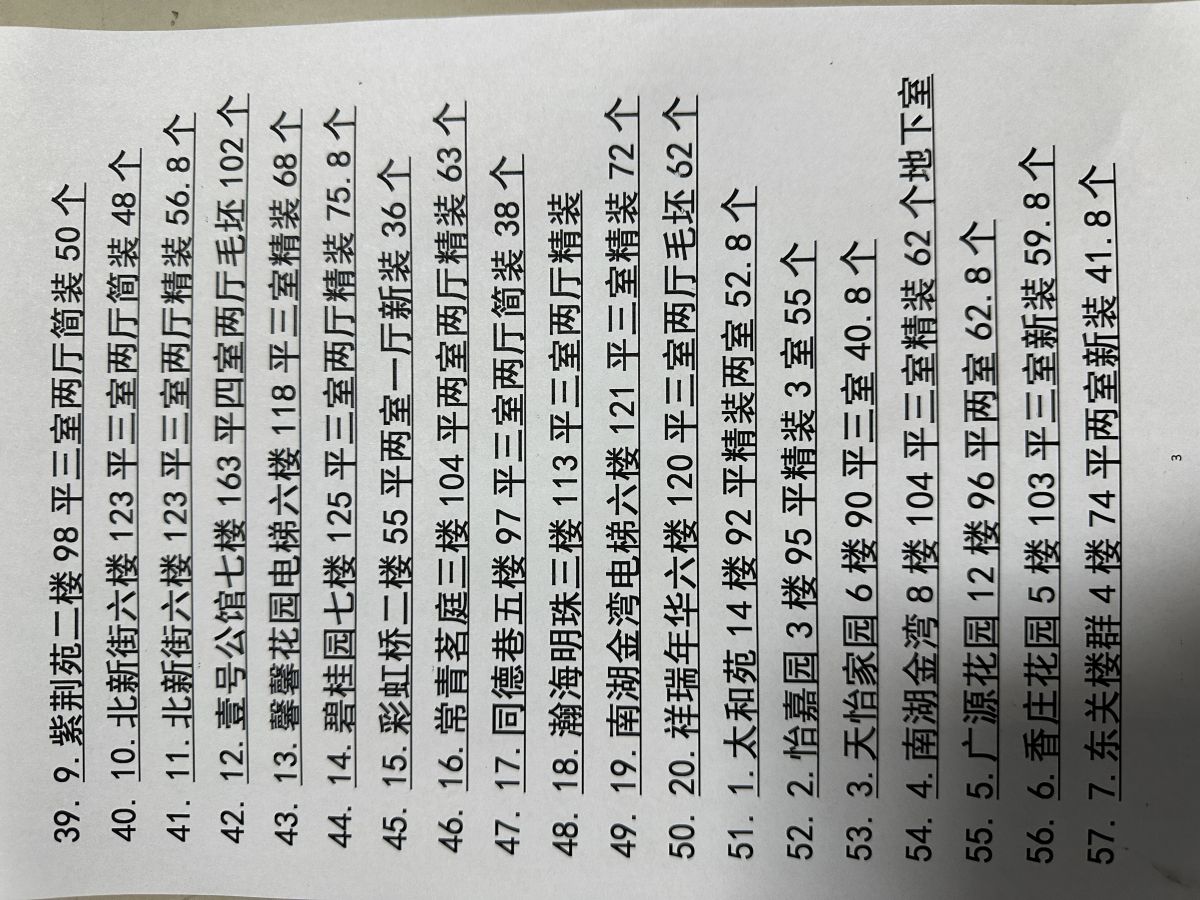 39. 9. 紫荆苑二楼 98 平三室两厅简装 50 个
40. 10. 北新街六楼 123 平三室两厅简装 48 个
41. 11. 北新街六楼 123 平三室两厅精装 56.8 个
42. 12. 壹号公馆七楼 163 平四室两厅毛坯 102 个
43. 13. 馨馨花园电梯六楼 118 平三室精装 68 个
44. 14. 碧桂园七楼 125 平三室两厅精装 75.8 个
45. 15. 彩虹桥二楼 55 平两室一厅新装 36 个
46. 16. 常青茗庭三楼 104 平两室两厅精装 63 个
47. 17. 同德巷五楼 97 平三室两厅简装 38 个
48. 18. 瀚海明珠三楼 113 平三室两厅精装
49. 19. 南湖金湾电梯六楼 121 平三室精装 72 个
50. 20. 祥瑞年华六楼 120 平三室两厅毛坯 62 个
51. 1. 太和苑 14 楼 92 平精装两室 52.8 个
52. 2. 怡嘉园 3 楼 95 平精装 3 室 55 个
53. 3. 天怡家园 6 楼 90 平三室 40.8 个
54. 4. 南湖金湾 8 楼 104 平三室精装 62 个地下室
55. 5. 广源花园 12 楼 96 平两室 62.8 个
56. 6. 香庄花园 5 楼 103 平三室新装 59.8 个
57. 7. 东关楼群 4 楼 74 平两室新装 41.8 个
3